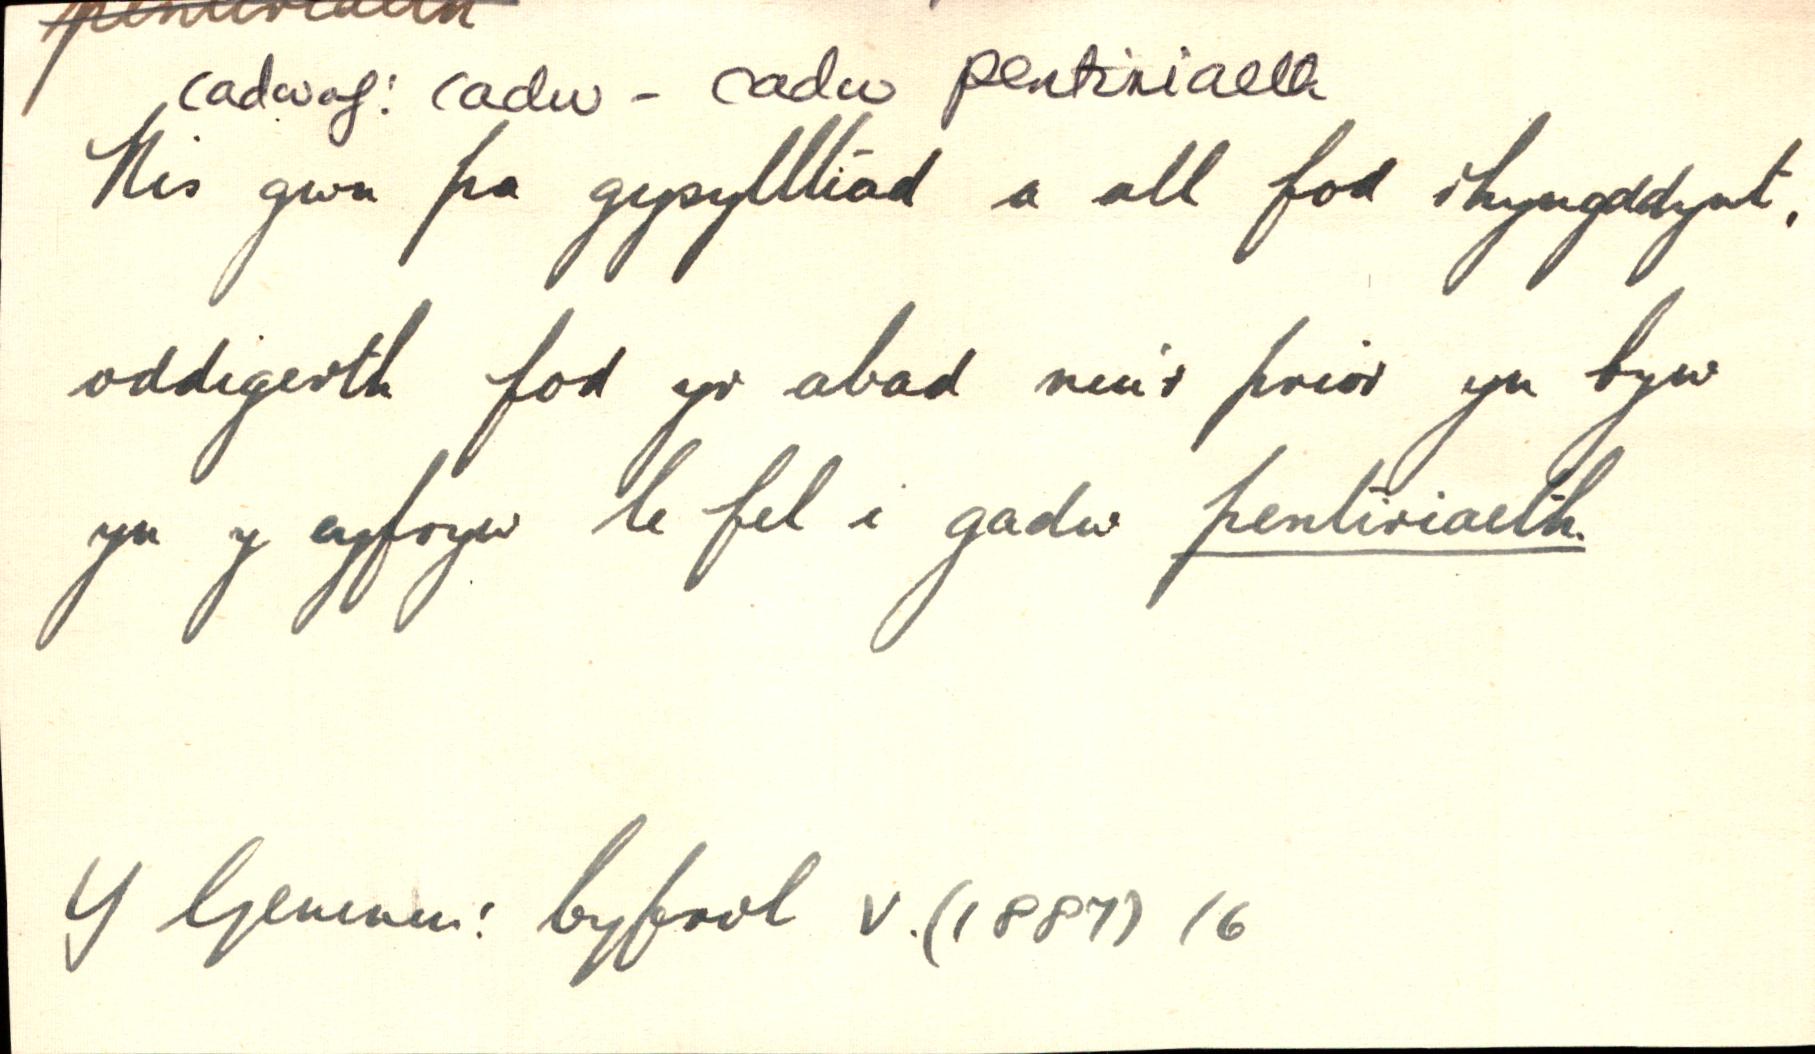 pentiriaeth
cadwaf: cadw - cadw pentiriaeth
Nis gwn pa gysylltiad a all fod rhyngddynt,
oddigerth fod yr abad neu'r prior yn byw
yn y cyfryw le fel i gadw pentiriaeth.
Y Geninen: Cyfrol V. (1887) 16